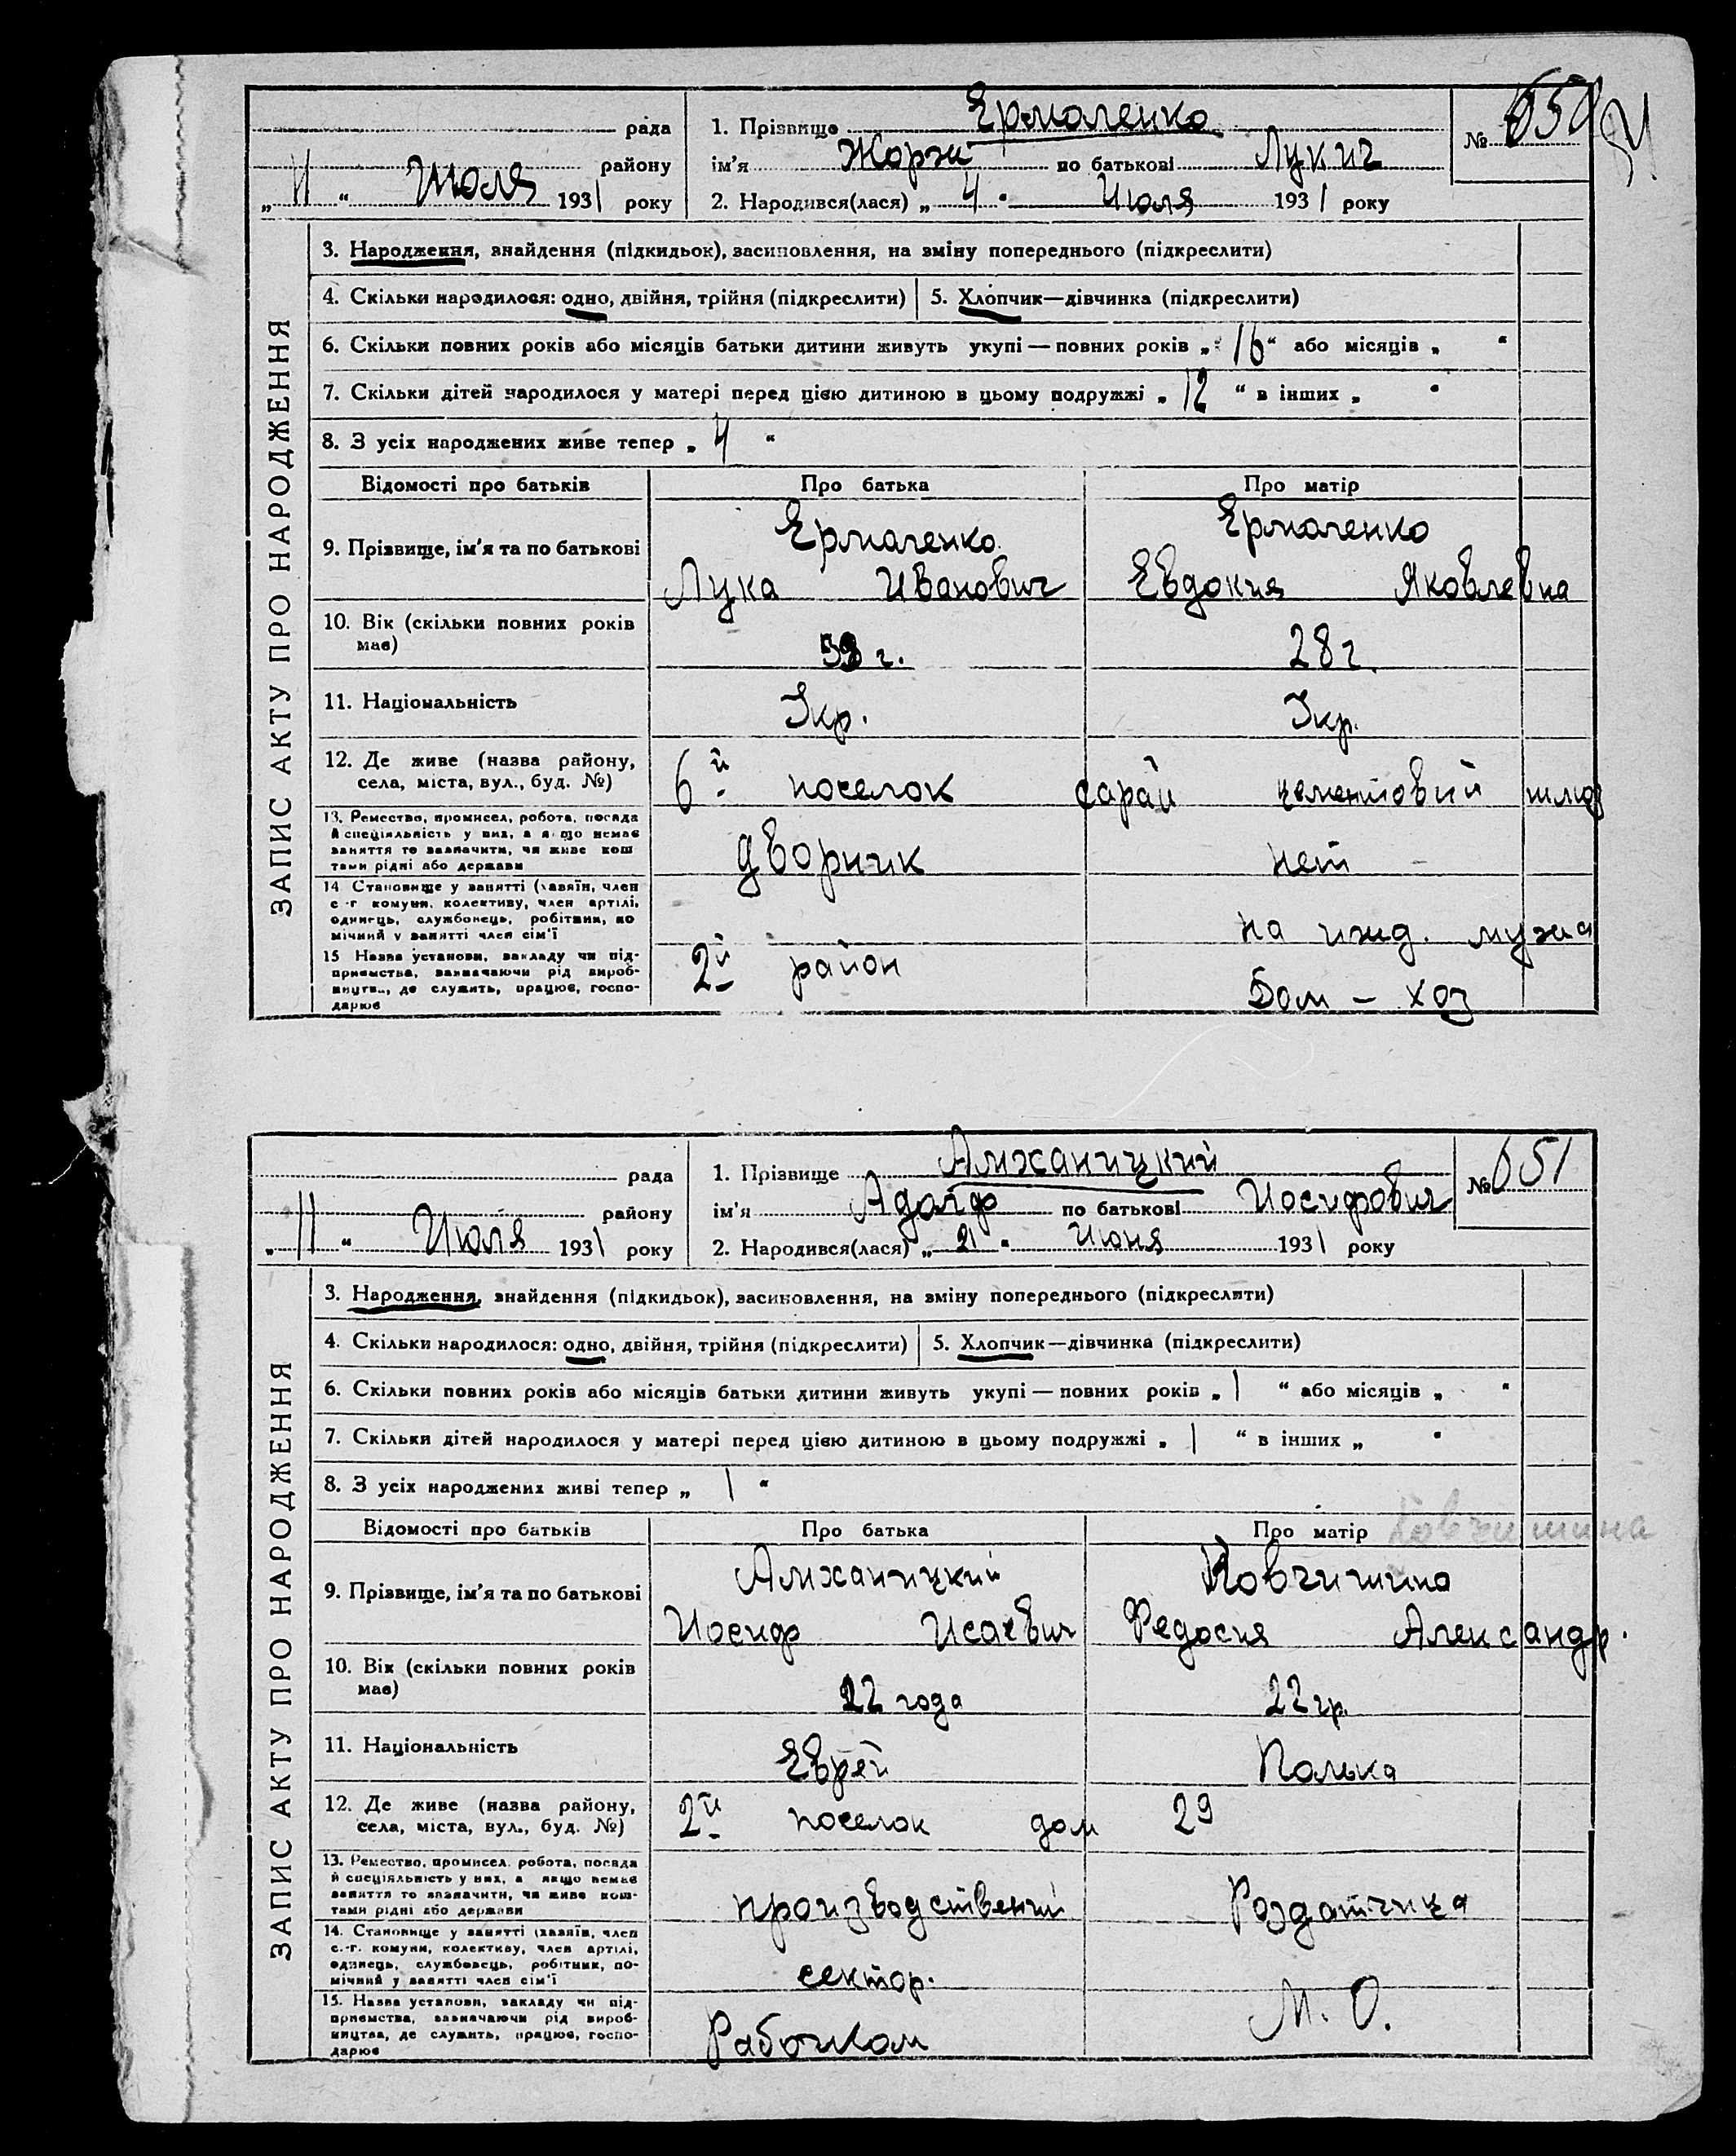 рада
1. Прізвище Ермоленко
№ 650
району
ім'я Жорж по батькові Лукич
„ 11 “ Июля 1931 року
2. Народився(лася) „ 4 “ Июля 1931 року
ЗАПИС АКТУ ПРО НАРОДЖЕННЯ
3. Народження, знайдення (підкидьок), засиновлення, на зміну попереднього (підкреслити)
4. Скільки народилося: одно, двійня, трійня (підкреслити) 5. Хлопчик—дівчинка (підкреслити)
6. Скільки повних років або місяців батьки дитини живуть укупі — повних років „ 16 “ або місяців „ “
7. Скільки дітей народилося у матері перед цією дитиною в цьому подружжі „ 12 “ в інших „ “
8. З усіх народжених живе тепер „ 4 “
Відомості про батьків Про батька Про матір
9. Прізвище, ім'я та по батькові
Ермоленко
Лука Иванович
Ермоленко
Евдокия Яковлевна
10. Вік (скільки повних років
має)
г.
28 г.
11. Національність Укр. Укр.
12. Де живе (назва району,
села, міста, вул., буд. №)
6й поселок сарай цементовий
13. Ремество, промисел, робота, посада
й спеціяльність у них, а якщо немає
заняття то зазначити, чи живе кош
тами рідні або держави
дворник
нет
14 Становище у занятті (хазяїн, член
с-г комуни, колективу, член артілі,
одинець, службовець, робітник, по
мічний у занятті член сім'ї
на ижд. мужа
15 Назва установи, закладу чи під-
приємства, зазначаючи рід вироб-
ництва, де служить, працює, госпо-
дарює
2й район
Дом – хоз
рада
1. Прізвище Амханицкий
№ 651
району
ім'я Адольф по батькові Иосифович
„ 11 “ Июля 1931 року
2. Народився(лася) „ 21 “ Июня 1931 року
ЗАПИС АКТУ ПРО НАРОДЖЕННЯ
3. Народження, знайдення (підкидьок), засиновлення, на зміну попереднього (підкреслити)
4. Скільки народилося: одно, двійня, трійня (підкреслити) 5. Хлопчик—дівчинка (підкреслити)
6. Скільки повних років або місяців батьки дитини живуть укупі — повних років „ 1 “ або місяців „ “
7. Скільки дітей народилося у матері перед цією дитиною в цьому подружжі „ 1 “ в інших „ “
8. З усіх народжених живі тепер „ 1 “
Відомості про батьків Про батька Про матір Ковчишина
9. Прізвище, ім'я та по батькові
Амханицкий
Иосиф Исаевич
Ковчишина
Федосия Александр.
10. Вік (скільки повних років
має)
22 года
22 гр.
11. Національність Еврей Полька
12. Де живе (назва району,
села, міста, вул., буд. №)
2й поселок дом 29
13. Ремество, промисел, робота, посада
й спеціяльність у них, а якщо немає
заняття то зазначити, чи живе кош-
тами рідні або держави
производственний
Роздатчица
14. Становище у занятті (хазяїн, член
с.-г. комуни, колективу, член артілі,
одинець, службовець, робітник, по-
мічний у занятті член сім'ї
сектор.
15. Назва установи, закладу чи під-
приємства, зазначаючи рід вироб-
ництва, де служить, працює, госпо-
дарює
Рабочком
М. О.